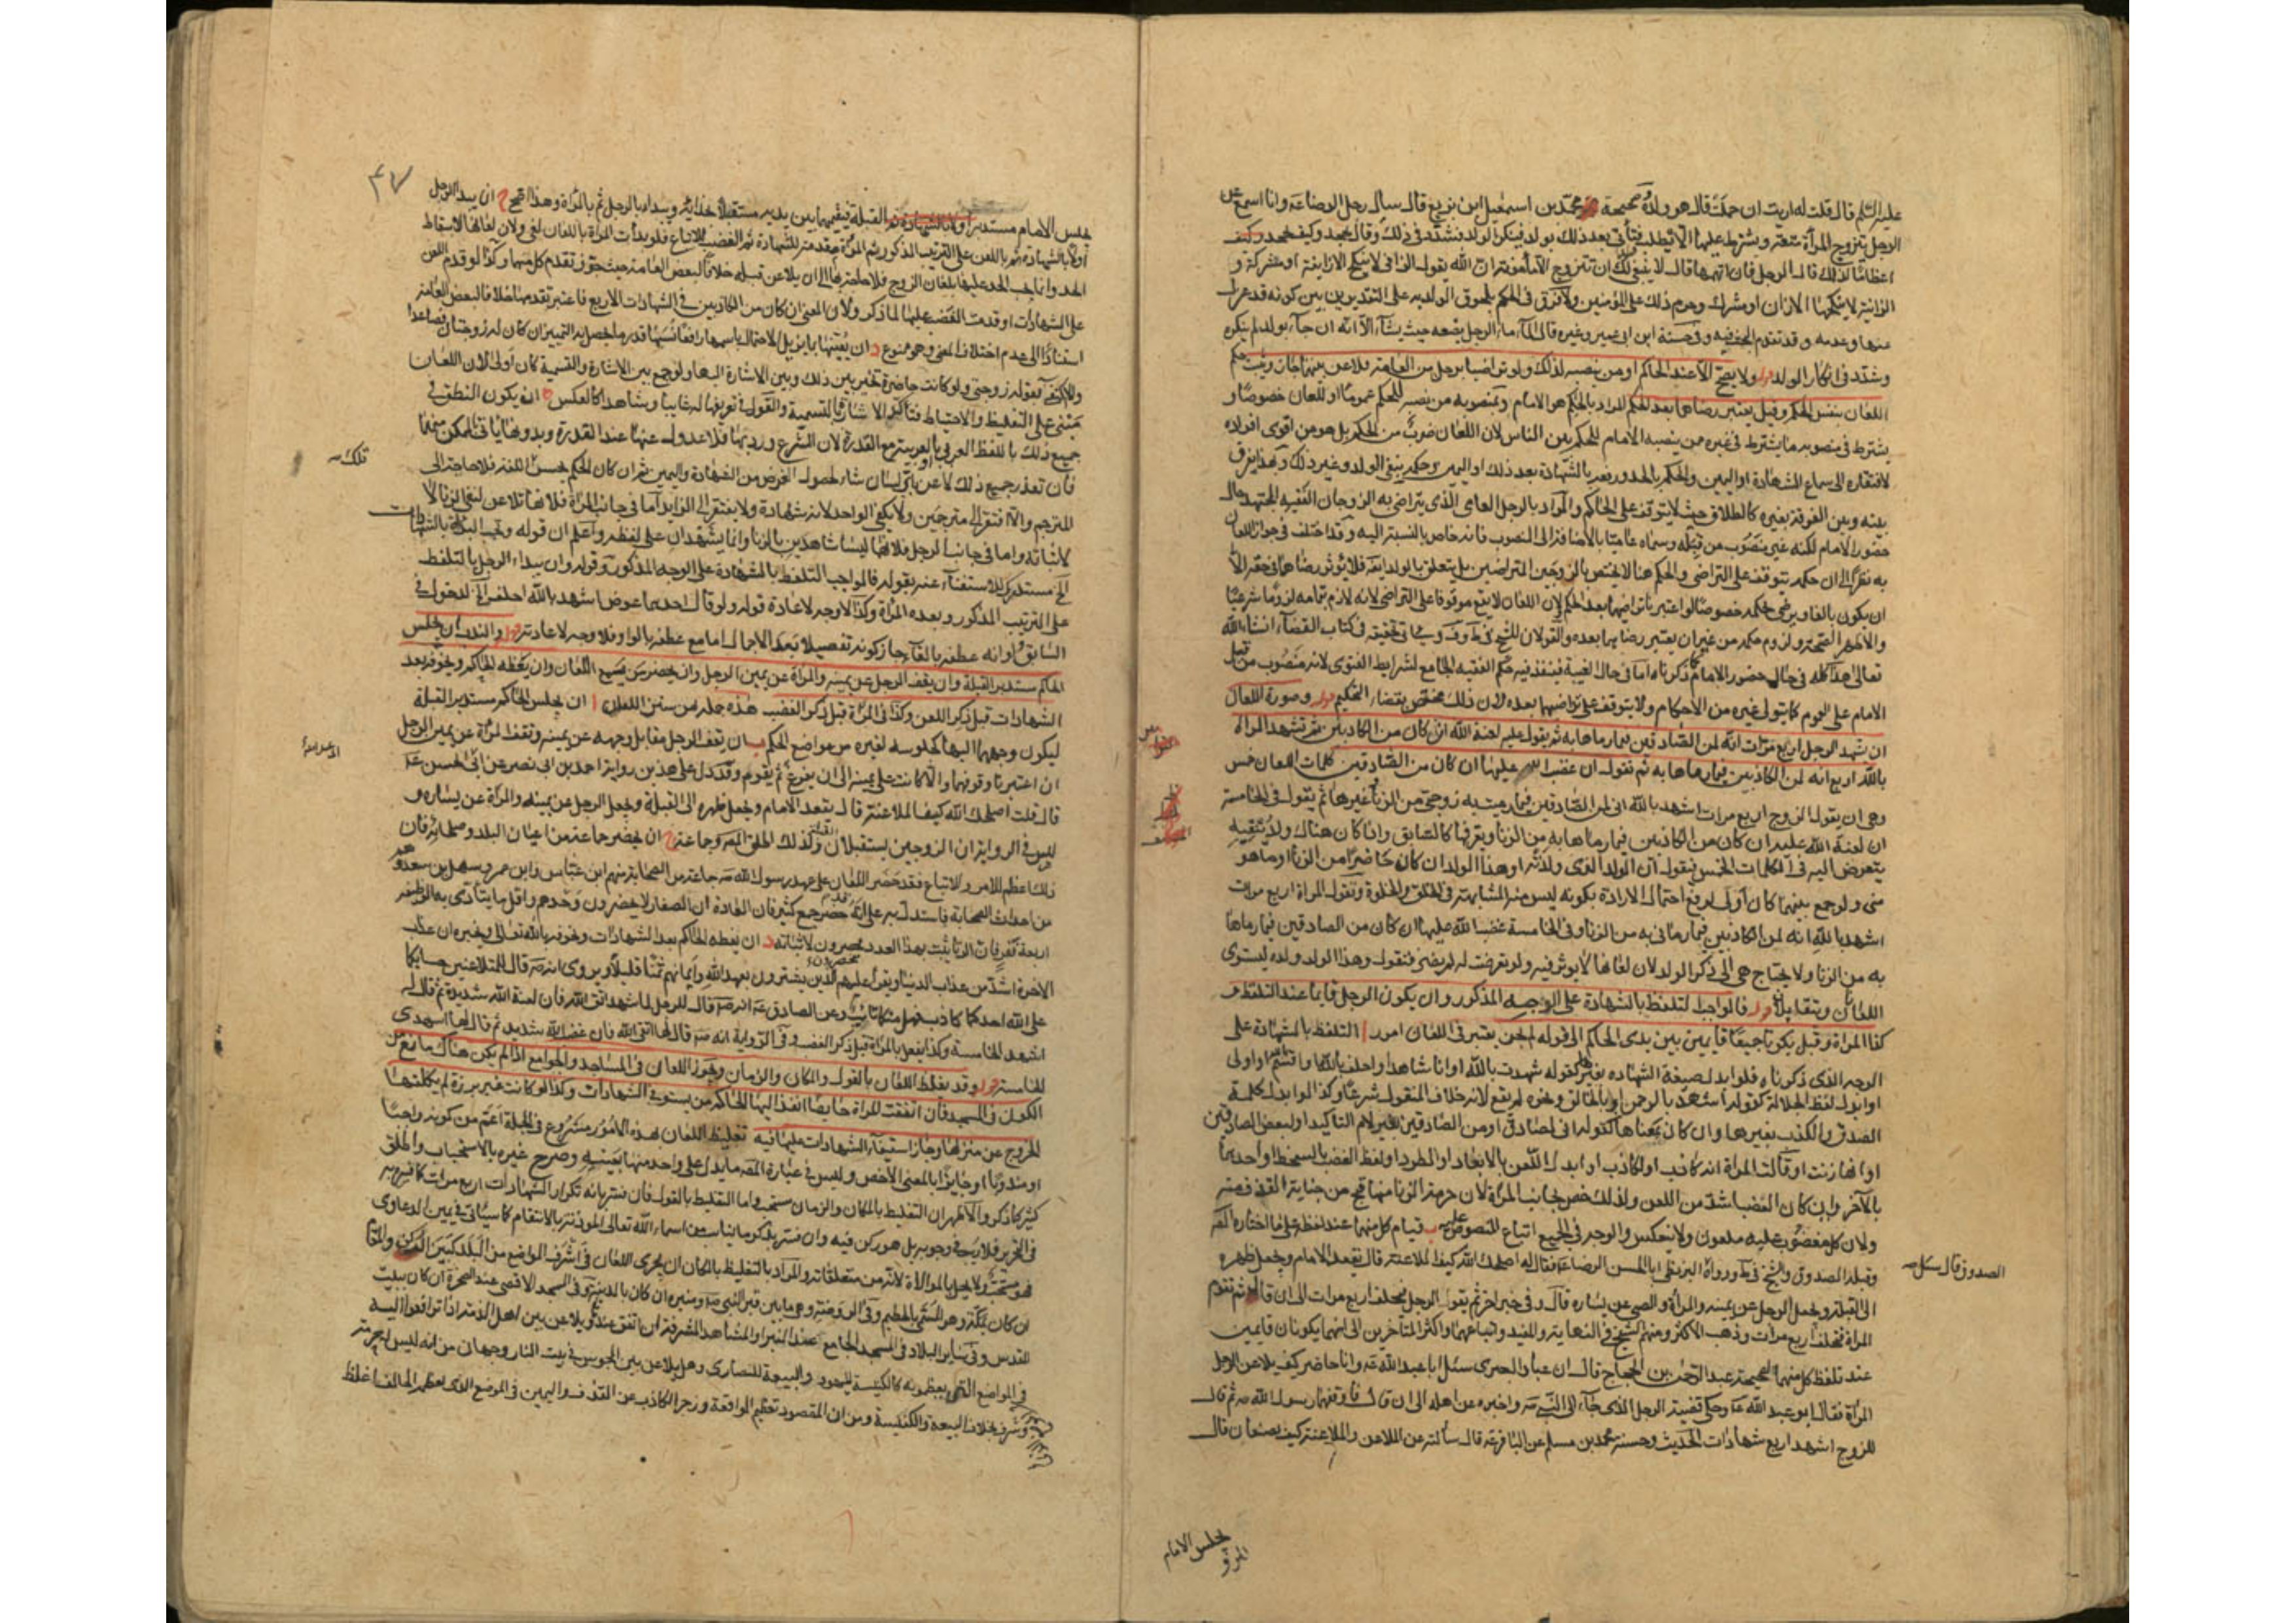 عليه السلم قال قلت له ارايت ان حملت قال هو ولده وصحيحة محمد بن اسمعيل ابن بزيع قال سال رجل الرضا عه وانا اسمع عن
الرجل يتزوج المراة متعة ويشترط عليها الا يطلب ولدها فتاتي بعد ذلك بولد فينكر الولد فشدد في ذلك وقال يجحد وكيف يجحد
اعظاما لذلك قال الرجل فان اتهمها قال لا ينبغي لك ان تتزوج الا مامونة ان الله يقول الزاني لا ينكح الا زانية او مشركة و
الزانية لا ينكحها الا زان او مشرك وحرم ذلك على المؤمنين ولا فرق في الحكم بلحوق الولد به على التقديرين بين كونه قد عزل
عنها وعدمه وقد تقدم البحث فيه وفي حسنة ابن ابي عمير وغيره قال الماء ماء الرجل يضعه حيث يشاء الا انه ان جاء بولد لم ينكره
وشدد في انكار الولد قوله ولا يصح الا عند الحاكم او من ينصبه لذلك ولو تراضيا برجل من العامة فلاعن بينهما جاز ويثبت حكم
اللعان بنفس الحكم وقيل يعتبر رضاهما بعد الحكم المراد بالحاكم هو الامام ومنصوبه من نصبه للحكم عموما او للعان خصوصا و
يشترط في منصوبه ما يشترط في غيره ممن ينصبه الامام للحكم بين الناس لان اللعان ضرب من الحكم بل هو من اقوى افراده
لافتقاره الى سماع الشهادة او اليمين والحكم بالحد ودفعه بالشهادة بعد ذلك او اليمين وحكمه بنفي الولد وغير ذلك وبهذا يفرق
بينه وبين الفرقة بغيره كالطلاق حيث لا يتوقف على الحاكم والمراد بالرجل العامي الذي يتراضى به الزوجان الفقيه المجتهد حال
حضور الامام لكنه غير منصوب من قبله وسماه عاميا بالاضافة الى المنصوب فانه خاص بالنسبة اليه وقد اختلف في جواز اللعان
به نظرا الى ان حكمه يتوقف على التراضي والحكم هنا لا يختص بالزوجين المتراضيين بل يتعلق بالولد ايضا فلا يؤثر رضاهما في حقه الا
ان يكون بالغا ويرضى بحكمه خصوصا لو اعتبرنا تراضيهما بعد الحكم لان اللعان لا يقع موقوفا على التراضي لانه لازم بتمامه لزوما شرعيا
والاظهر الصحة ولزوم حكمه من غير ان يعتبر رضاهما بعده والقولان للشيخ في ط وف وسياتي تحقيقه في كتاب القضاء انشاء الله
تعالى هذا كله في حال حضور الامام كما ذكرناه اما في حال الغيبة فينفذ فيه حكم الفقيه الجامع لشرايط الفتوى لانه منصوب من قبل
الامام على العموم كما يتولى غيره من الاحكام ولا يتوقف على تراضيهما بعده لان ذلك مختص بقضاء التحكيم قوله وصورة اللعان
ان يشهد الرجل اربع مرات انه لمن الصادقين فيما رماها به ثم يقول عليه لعنة الله ان كان من الكاذبين ثم تشهد المراة
بالله اربع انه لمن الكاذبين فيما رماها به ثم تقول ان غضب الله عليها ان كان من الصادقين كلمات اللعان خمس
وهي ان يقول الزوج اربع مرات اشهد بالله اني لمن الصادقين فيما رميت به زوجتي من الزنا ثم يقول في الخامسة
ان لعنة الله عليه ان كان من الكاذبين فيما رماها به من الزنا ويعرفها كالسابق واذا كان هناك ولد ينفيه
يتعرض اليه في الكلمات الخمس فيقول ان الولد الذي ولدته او هذا الولد ان كان حاضرا من الزنا وما هو
مني ولو جمع بينهما كان اولى لرفع احتمال الارادة بكونه ليس منه المشابهة في الخلق والخلق وتقول المراة اربع مرات
اشهد بالله انه لمن الكاذبين فيما رماني به من الزنا وفي الخامسة غضب الله عليها ان كان من الصادقين فيما رماها
به من الزنا ولا يحتاج هي الى ذكر الولد لان لعانها لا يؤثر فيه ولو تعرضت له لم يضر فتقول وهذا الولد ولده ليستوى
اللعانان ويتقابلان قوله فالواجب التلفظ بالشهادة على الوجه المذكور وان يكون الرجل قايما عند التلفظ و
كذا المراة وقيل يكونا جميعا قايمين بين يدى الحاكم الى قوله لم يجز يعتبر في اللعان امور ا التلفظ بالشهادة على
الوجه الذي ذكرناه فلو ابدل صيغة الشهادة بغيرها كقوله شهدت بالله او انا شاهد او احلف بالله او اقسم او اولى
او ابدل لفظ الجلالة كقوله اشهد بالرحمن او بالخالق ونحوه لم يقع لانه خلاف المنقول شرعا وكذا لو ابدل كلمة
الصدق والكذب بغيرها وان كان بمعناها كقوله اني لصادق او من الصادقين بغير لام التاكيد او لبعض الصادقين
او انها زنت او قالت المراة انه كاذب او لكاذب او ابدل اللعن بالابعاد او الطرد او لفظ الغضب بالسخط او احدهما
بالآخر وان كان الغضب اشد من اللعن ولذلك خص بجانب المراة لان جريمة الزنا منها اقبح من جناية القذف منه
ولان كل مغضوب عليه ملعون ولا ينعكس والوجه في الجميع اتباع المنصوص ب قيام كل منهما عند لفظه على ما اختاره المصه
وقبله الصدوق والشيخ في ط ورواه البزنطي ابا الحسن الرضا عه فقال له اصلحك الله كيف الملاعنة قال يقعد الامام ويجعل ظهره
الى القبلة ويجعل الرجل عن يمينه والمراة والصبي عن يساره قال وفي خبر اخر ثم يقوم الرجل فيحلف اربع مرات الى ان قال ثم تقوم
المراة فتحلف اربع مرات وذهب الاكثر ومنهم الشيخ في النهاية والمفيد واتباعهما واكثر المتاخرين الى انهما يكونان قايمين
عند تلفظ كل منهما لصحيحة عبد الرحمن بن الحجاج قال ان عباد البصرى سئل ابا عبد الله عه وانا حاضر كيف يلاعن الرجل
المراة فقال ابو عبد الله عه وحكى قضية الرجل الذي جاء الى النبي صه واخبره عن اهله الى ان قال فاوقفهما رسول الله صه ثم قال
للزوج اشهد اربع شهادات الحديث وحسنة محمد بن مسلم عن الباقر عه قال سالته عن الملاعن والملاعنة كيف يصنعان قال
الصدوق قال سئل
يجلس الامام
٤٧
يجلس الامام مستدبر القبلة فيقيمهما بين يديه مستقبلا القبلة بحذائه ويبدا بالرجل ثم بالمراة وهذا اصح ج ان يبدا الرجل
اولا بالشهادة ثم باللعن على الترتيب المذكور ثم المراة فلو بدات المراة باللعان لغى ولان لعانها لاسقاط
الحد وانما يجب الحد عليها بلعان الزوج فلا حاجة بها الى ان يلاعن قبله خلافا لبعض العامة حيث جوز تقدم كل منهما وكذا لو قدم اللعن
على الشهادات او قدمت الغضب عليها لما ذكر ولان المعنى ان كان من الكاذبين في الشهادات الاربع فاعتبر تقدمها خلافا لبعض العامة
استنادا الى عدم اختلاف المعنى وهو ممنوع د ان يعينها بما يزيل الاحتمال باسمها رافعا نسبها قدر ما يحصل به التمييز ان كان له زوجتان فصاعدا
والا كفى قوله زوجتي ولو كانت حاضرة تخير بين ذلك وبين الاشارة اليها ولو جمع بين الاشارة والتسمية كان اولى لان اللعان
مبني على التغليظ والاحتياط فتاكيد الاشارة بالتسمية والقول في تعريفها له غايبا وشاهدا كالعكس ه ان يكون النطق في
جميع ذلك باللفظ العربي مع القدرة لان الشرع ورد بهما فلا عدول عنهما عند القدرة وبدونها ياتي بالممكن منهما
فان تعذر جميع ذلك لاعن باي لسان شاء لحصول الغرض من الشهادة واليمين ثم ان كان الحاكم يحسن اللغة فلا حاجة الى
المترجم والا افتقر الى مترجمين ولا يكفي الواحد لانه شهادة ولا يفتقر الى الزايد اما في جانب المراة فلانها تلاعن لنفي الزنا لا
لاثباته واما في جانب الرجل فلانهما ليسا شاهدين بالزنا وانما يشهدان على لفظه واعلم ان قوله ويجب البداة بالشهادات
الخ مستدرك للاستغناء عنه بقوله فالواجب التلفظ بالشهادة على الوجه المذكور وقوله وان يبداء الرجل بالتلفظ
على الترتيب المذكور وبعده المراة وكذا لا وجه لاعادة قوله ولو قال احدهما عوض اشهد بالله احلف الخ لدخوله في
السابق ولو انه عطفه بالفاء جاز كونه تفصيلا بعد الاجمال اما مع عطفه بالواو فلا وجه لاعادته قوله والندب ان يجلس
الحاكم مستدبر القبلة وان يقف الرجل عن يمينه والمراة عن يمين الرجل وان يحضر من يسمع اللعان وان يعظه الحاكم ويخوفه بعد
الشهادات قبل ذكر اللعن وكذا في المراة قبل ذكر الغضب هذه جملة من سنن اللعان ا ان يجلس الحاكم مستدبر القبلة
ليكون وجههما اليها كجلوسه لغيره من مواضع الحكم ب ان يقف الرجل مقابل وجهه عن يمينه وتقف المراة عن يمين الرجل
ان اعتبرنا وقوفهما والا كانت على يمينه الى ان يفرغ ثم يقوم وقد دل على هذين رواية احمد بن ابى نصر عن ابى الحسن عه
قال قلت اصلحك الله كيف الملاعنة قال يقعد الامام ويجعل ظهره الى القبلة ويجعل الرجل عن يمينه والمراة عن يساره و
ليس في الرواية ان الزوجين يستقبلان القبلة وكذلك اطلق المصه وجماعة ج ان يحضر جماعة من اعيان البلد وصلحائه فان
ذلك اعظم للامر وللاتباع فقد حضر اللعان على عهد رسول الله صه جماعة من الصحابة منهم ابن عباس وابن عمر وسهل بن سعد وهم
من احداث الصحابة فاستدل به على انه حضر جمع كثير فان العادة ان الصغار لا يحضرون وحدهم واقل ما يتادى به الوظيفة
اربعة نفر فان الزنا يثبت بهذا العدد فيحضرون لاثباته د ان يعظه الحاكم بعد الشهادات ويخوفه بالله تعالى ويخبره ان عذاب
الاخرة اشد من عذاب الدنيا ويقرا عليهم ان الذين يشترون بعهد الله وايمانهم ثمنا قليلا ويروى انه صه قال للمتلاعنين حسابكما
على الله احدكما كاذب فهل منكما تائب وعن الصادق عه انه صه قال للرجل لما شهد اتق الله فان لعنة الله شديدة ثم قال له
اشهد الخامسة وكذا يفعل بالمراة قبل ذكر الغضب وفي الرواية انه صه قال لها اتقى الله فان غضب الله شديد ثم قال لها اشهدى
الخامسة قوله وقد يغلظ اللعان بالقول والمكان والزمان ويجوز اللعان في المساجد والجوامع اذا لم يكن هناك مانع من
الكون في المسجد فان اتفقت المراة حايضا انفذ اليها الحاكم من يستوفي الشهادات وكذا لو كانت غير برزة لم يكلفها
الخروج عن منزلها وجاز استيفاء الشهادات عليها فيه تغليظ اللعان بهذه الامور مشروع في الجملة اعم من كونه واجبا
او مندوبا او جايزا بالمعنى الاخص وليس في عبارة المصه ما يدل على واحد منها بعينه وصرح غيره بالاستحباب واطلق
كثير كما ذكر والاظهر ان التغليظ بالمكان والزمان مستحب واما التغليظ بالقول فان فسر بانه تكرار الشهادات اربع مرات كما فسر به
في التحرير فلا ريب في وجوبه بل هو ركن فيه وان فسر بذكر ما يناسب من اسماء الله تعالى الموذنة بالانتقام كما سياتي في يمين الدعاوى
فهو مستحب ولا يخل بالموالاة لانه من متعلقاته والمراد بالتغليظ بالمكان ان يجرى اللعان في اشرف المواضع من البلد كبين الركن والمقام
ان كان بمكة وهو المسمى بالحطيم وفي الروضة وهي ما بين قبر النبي صه ومنبره ان كان بالمدينة وفي المسجد الاقصى عند الصخرة ان كان ببيت
المقدس وفي ساير البلاد في المسجد الجامع عند المنبر او المشاهد المشرفة ان اتفق عنده ويلاعن بين اهل الذمة اذا ترافعوا اليه
في المواضع التي يعظمونه كالكنيسة لليهود والبيعة للنصارى وهل يلاعن بين المجوس في بيت النار وجهان من انه ليس له حرمة
وشرف بخلاف البيعة والكنيسة ومن ان المقصود تعظيم الواقعة وزجر الكاذب عن القذف واليمين في الموضع الذي يعظمه الحالف اغلظ